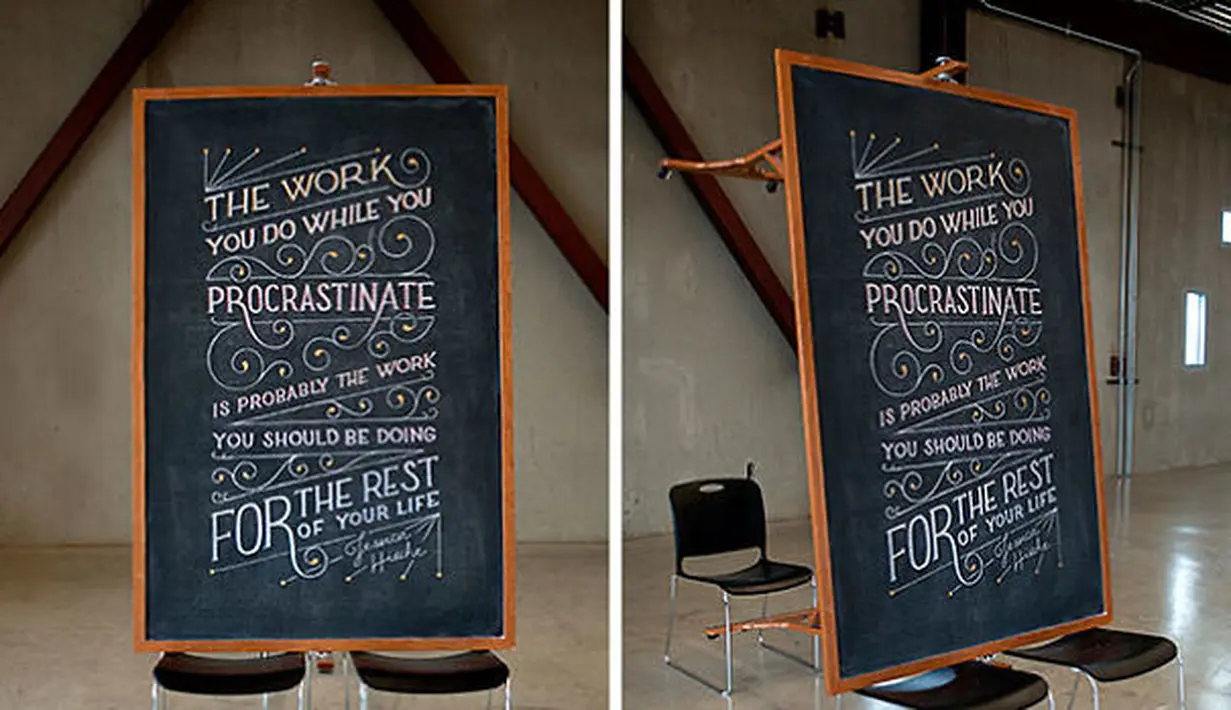 THE WORK
YOU DO WHILE YOU
PROCRASTINATE
IS PROBABLY THE WORK
YOU SHOULD BE DOING
FOR THE REST
OF YOUR LIFE
Jessica
Hische
THE WORK
YOU DO WHILE YOU
PROCRASTINATE
IS PROBABLY THE WORK
YOU SHOULD BE DOING
FOR THE REST
OF YOUR LIFE
Jessica
Hische